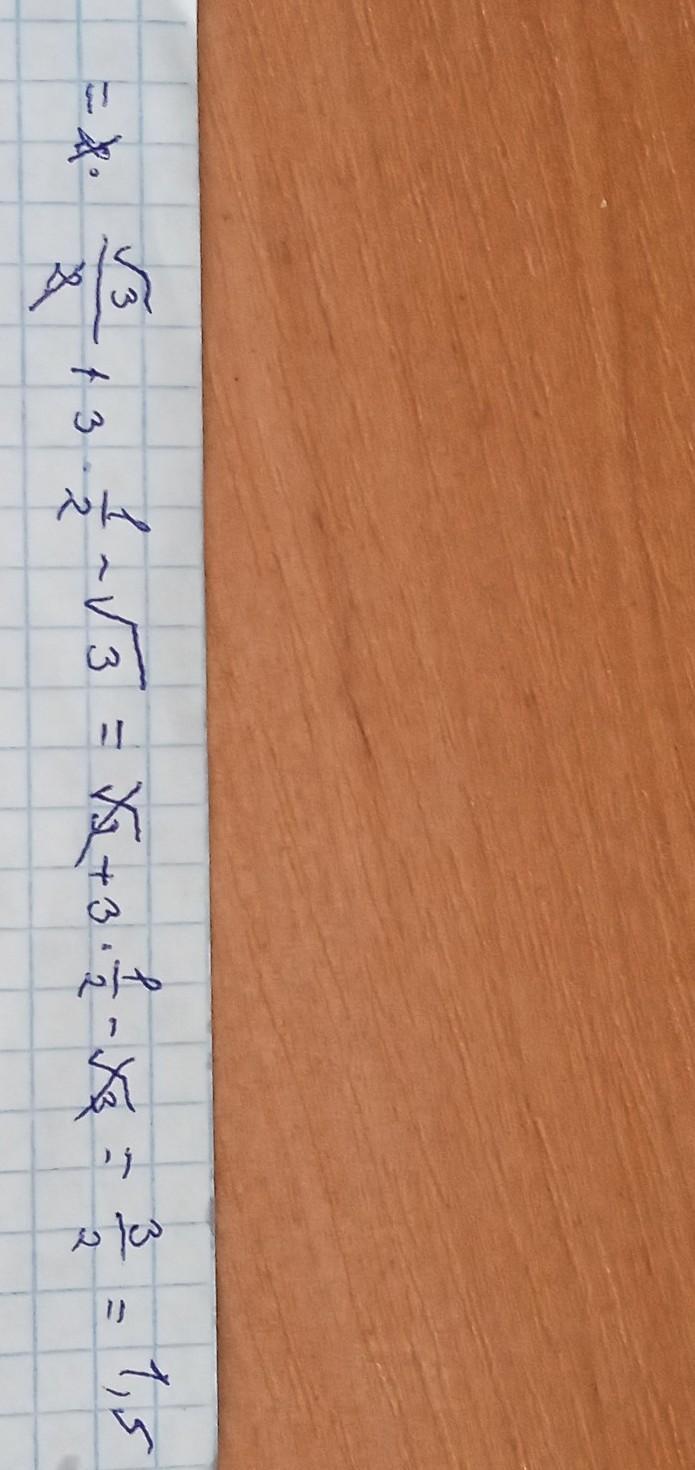 = 2 · √3/2 + 3 · 1/2 - √3 = √3 + 3 · 1/2 - √3 = 3/2 = 1,5